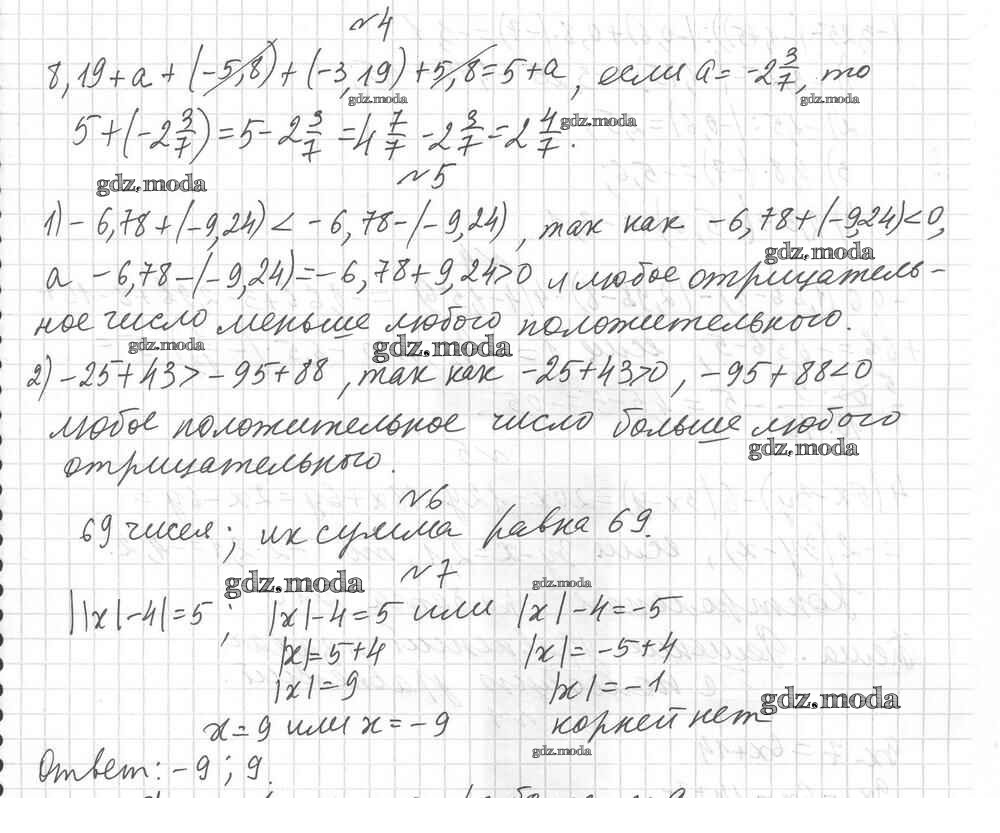 №4
8,19+a+(-5,8)+(-3,19)+5,8=5+a, если a=-2 3/7, то
gdz.moda gdz.moda
5+(-2 3/7)=5-2 3/7=4 7/7-2 3/7=2 4/7. gdz.moda
gdz.moda №5
1) -6,78+(-9,24)<-6,78-(-9,24), так как -6,78+(-9,24)<0,
gdz.moda
а -6,78-(-9,24)=-6,78+9,24>0 и любое отрицатель-
ное число меньше любого положительного.
gdz.moda gdz.moda
2) -25+43>-95+88, так как -25+43>0, -95+88<0
любое положительное число больше любого
gdz.moda
отрицательного.
№6
69 чисел; их сумма равна 69.
gdz.moda №7 gdz.moda
||x|-4|=5; |x|-4=5 или |x|-4=-5
|x|=5+4 |x|=-5+4
|x|=9 |x|=-1
gdz.moda
x=9 или x=-9 корней нет
gdz.moda
Ответ: -9; 9.